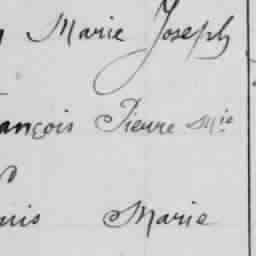 Marie Joseph
ançois Pierre Mie
uis Marie